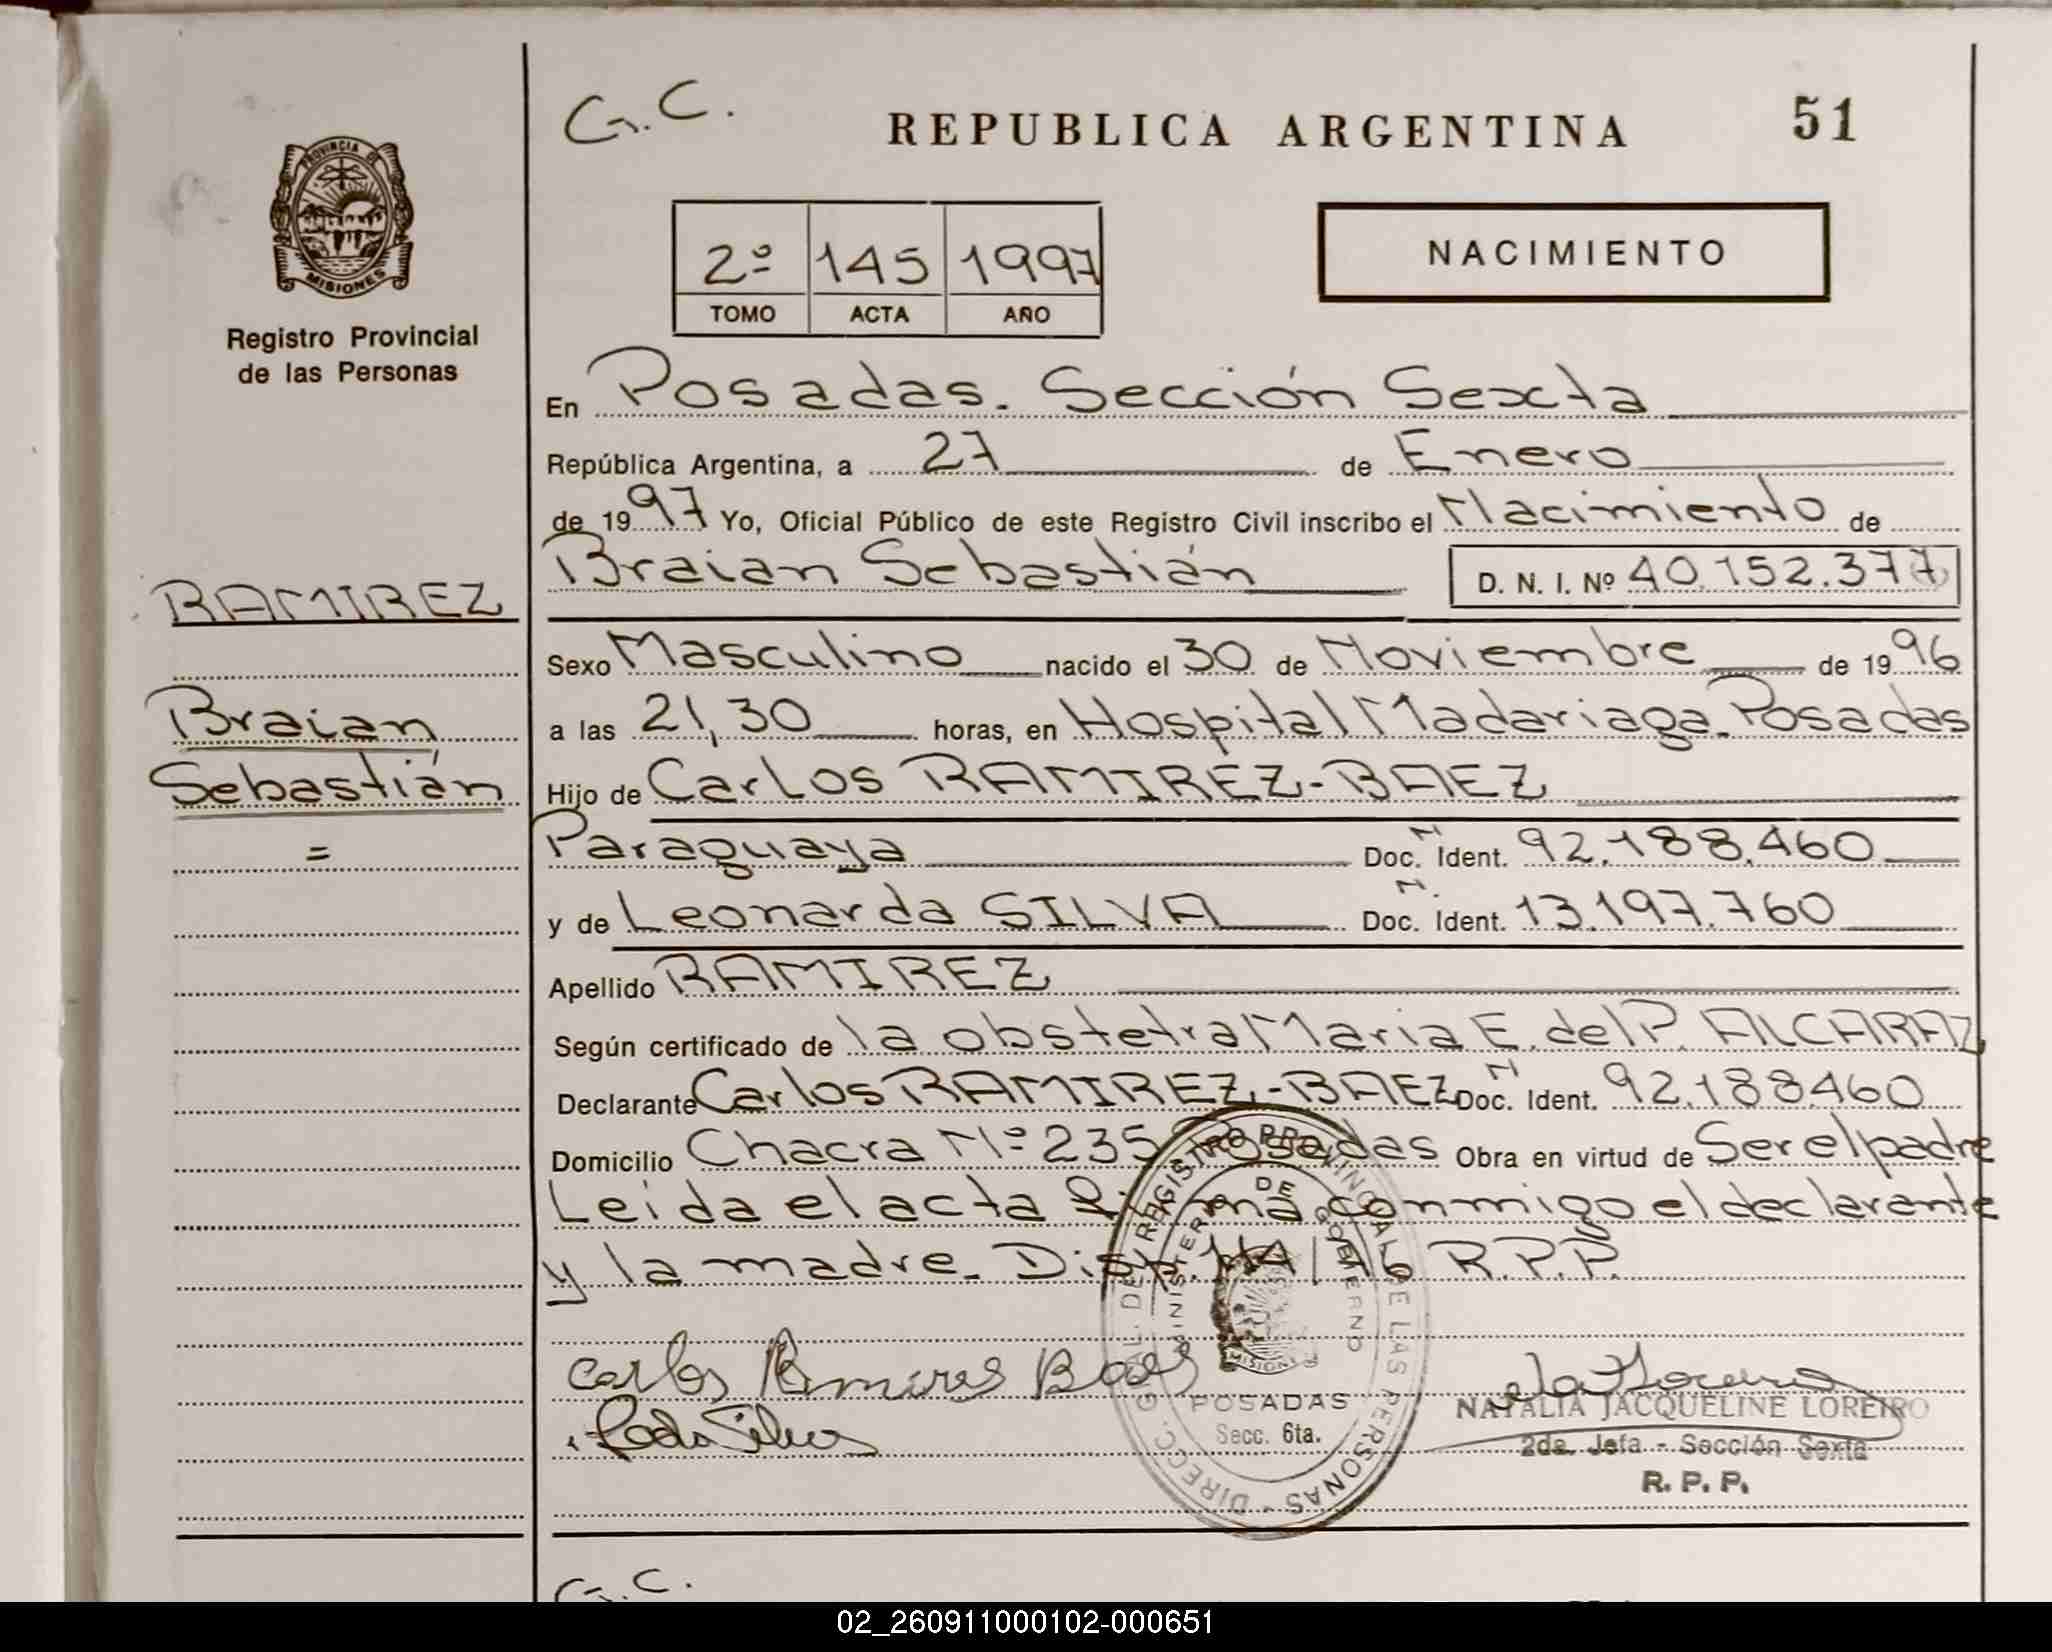 G.C.
REPUBLICA ARGENTINA
51
PROVINCIA DE
MISIONES
Registro Provincial
de las Personas
2º 145 1997
TOMO ACTA AÑO
NACIMIENTO
En Posadas. Sección Sexta
República Argentina, a 27 de Enero
de 1997 Yo, Oficial Público de este Registro Civil inscribo el Nacimiento de
Braian Sebastián D. N. I. Nº 40.152.377
RAMIREZ
Sexo Masculino nacido el 30 de Noviembre de 1996
Braian
a las 21,30 horas, en Hospital Madariaga. Posadas
Sebastián
Hijo de Carlos RAMIREZ-BAEZ
=
Paraguaya Doc. N Ident. 92.188.460
y de Leonarda SILVA Doc. N. Ident. 13.197.760
Apellido RAMIREZ
Según certificado de la obstetra Maria E. del P. ALCARAZ
Declarante Carlos RAMIREZ-BAEZ Doc. N Ident. 92.188.460
Domicilio Chacra Nº 235 Posadas Obra en virtud de Ser el padre
Leida el acta firma conmigo el declarante
y la madre. Disp. 114/76 R.P.P.
DIREC. GRAL. DE REGISTRO PROVINCIAL DE LAS PERSONAS
MINISTERIO DE GOBIERNO
MISIONES
POSADAS
Secc. 6ta.
Carlos Ramires Baes
Silva
NATALIA JACQUELINE LOREIRO
2da. Jefa - Sección Sexta
R. P. P.
G.C.
02_260911000102-000651